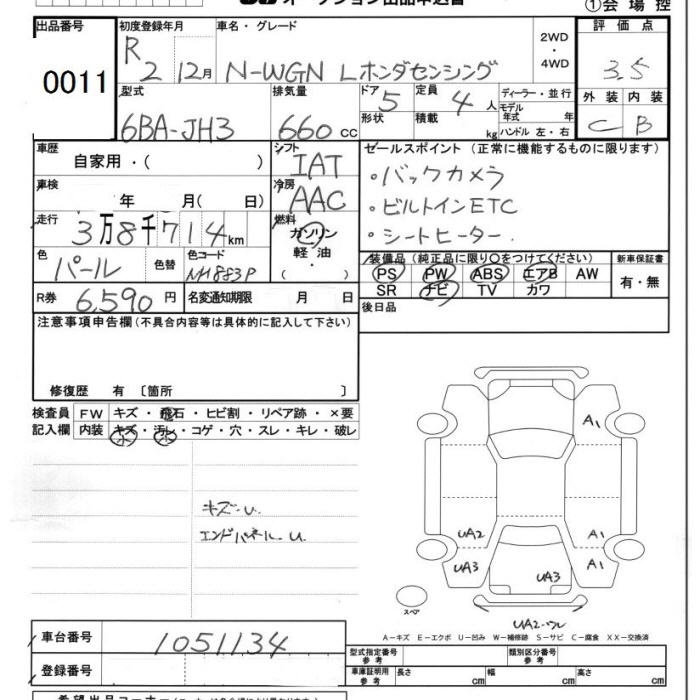 オークション出品申込書 ①会場控
出品番号 初度登録年月 車名・グレード 2WD・4WD 評価点
0011 R 2 12月 N-WGN Lホンダセンシング 3.5
型式 排気量 ドア 5 定員 4人 ディーラー・並行 外装 内装
6BA-JH3 660cc 形状 積載 kg モデル年式 年 ハンドル 左・右 C B
車歴 自家用・( ) シフト IAT セールスポイント (正常に機能するものに限ります)
車検 年 月(日) 冷房 AAC ・バックカメラ
走行 3万8千714km 燃料 ガソリン・軽油・( ) ・ビルトインETC
・シートヒーター
色 パール 色替 色コード NH883P 装備品(純正品に限り○をつけてください) 新車保証書
PS PW ABS エアB AW 有・無
SR ナビ TV カワ
R券 6,590円 名変通知期限 月 日 後日品
注意事項申告欄(不具合内容等は具体的に記入して下さい)
修復歴 有〔箇所 〕
検査員 FW キズ・飛石・ヒビ割・リペア跡・×要
記入欄 内装 キズ・汚レ・コゲ・穴・スレ・キレ・破レ
A1
キズ・U
エンドパネルU
UA2 A1
UA3 A1
UA3
スペア
UA2
A-キズ E-エクボ U-凹み W-補修跡 S-サビ C-腐食 XX-交換済
車台番号 1051134 型式指定番号 参考 類別区分番号 参考
登録番号 車庫証明用 参考 長さ cm 幅 cm 高さ cm
希望出品コーナー